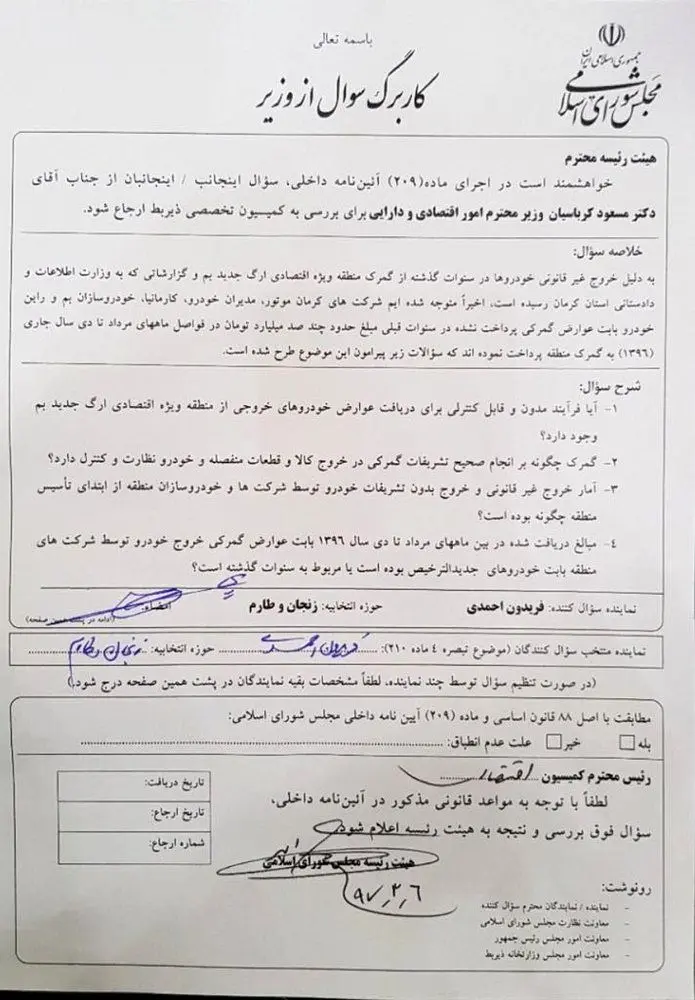 باسمه تعالی
جمهوری اسلامی ایران
مجلس شورای اسلامی
کاربرگ سوال از وزیر
هیئت رئیسه محترم
خواهشمند است در اجرای ماده(۲۰۹) آئین‌نامه داخلی، سؤال اینجانب / اینجانبان از جناب آقای
دکتر مسعود کرباسیان وزیر محترم امور اقتصادی و دارایی برای بررسی به کمیسیون تخصصی ذیربط ارجاع شود.
خلاصه سؤال:
به دلیل خروج غیر قانونی خودروها در سنوات گذشته از گمرک منطقه ویژه اقتصادی ارگ جدید بم و گزارشاتی که به وزارت اطلاعات و
دادستانی استان کرمان رسیده است، اخیراً متوجه شده ایم شرکت های کرمان موتور، مدیران خودرو، کارمانیا، خودروسازان بم و راین
خودرو بابت عوارض گمرکی پرداخت نشده در سنوات قبلی مبلغ حدود چند صد میلیارد تومان در فواصل ماههای مرداد تا دی سال جاری
(۱۳۹۶) به گمرک منطقه پرداخت نموده اند که سؤالات زیر پیرامون این موضوع طرح شده است.
شرح سؤال:
۱- آیا فرآیند مدون و قابل کنترلی برای دریافت عوارض خودروهای خروجی از منطقه ویژه اقتصادی ارگ جدید بم
وجود دارد؟
۲- گمرک چگونه بر انجام صحیح تشریفات گمرکی در خروج کالا و قطعات منفصله و خودرو نظارت و کنترل دارد؟
۳- آمار خروج غیر قانونی و خروج بدون تشریفات خودرو توسط شرکت ها و خودروسازان منطقه از ابتدای تأسیس
منطقه چگونه بوده است؟
۴- مبالغ دریافت شده در بین ماههای مرداد تا دی سال ۱۳۹۶ بابت عوارض گمرکی خروج خودرو توسط شرکت های
منطقه بابت خودروهای جدیدالترخیص بوده است یا مربوط به سنوات گذشته است؟
نماینده سؤال کننده: فریدون احمدی حوزه انتخابیه: زنجان و طارم امضاء:
(ادامه در پشت همین صفحه)
نماینده منتخب سؤال کنندگان (موضوع تبصره ٤ ماده ۲۱۰): فریدون احمدی حوزه انتخابیه: زنجان و طارم
(در صورت تنظیم سؤال توسط چند نماینده، لطفاً مشخصات بقیه نمایندگان در پشت همین صفحه درج شود.)
مطابقت با اصل ۸۸ قانون اساسی و ماده (۲۰۹) آیین نامه داخلی مجلس شورای اسلامی:
بله خیر علت عدم انطباق:
رئیس محترم کمیسیون اقتصادی
لطفاً با توجه به مواعد قانونی مذکور در آئین‌نامه داخلی،
سؤال فوق بررسی و نتیجه به هیئت رئیسه اعلام شود.
هیئت رئیسه مجلس شورای اسلامی
۹۷/۲/۶
تاریخ دریافت:
تاریخ ارجاع:
شماره ارجاع:
رونوشت:
- نماینده / نمایندگان محترم سؤال کننده
- معاونت نظارت مجلس شورای اسلامی
- معاونت امور مجلس رئیس جمهور
- معاونت امور مجلس وزارتخانه ذیربط